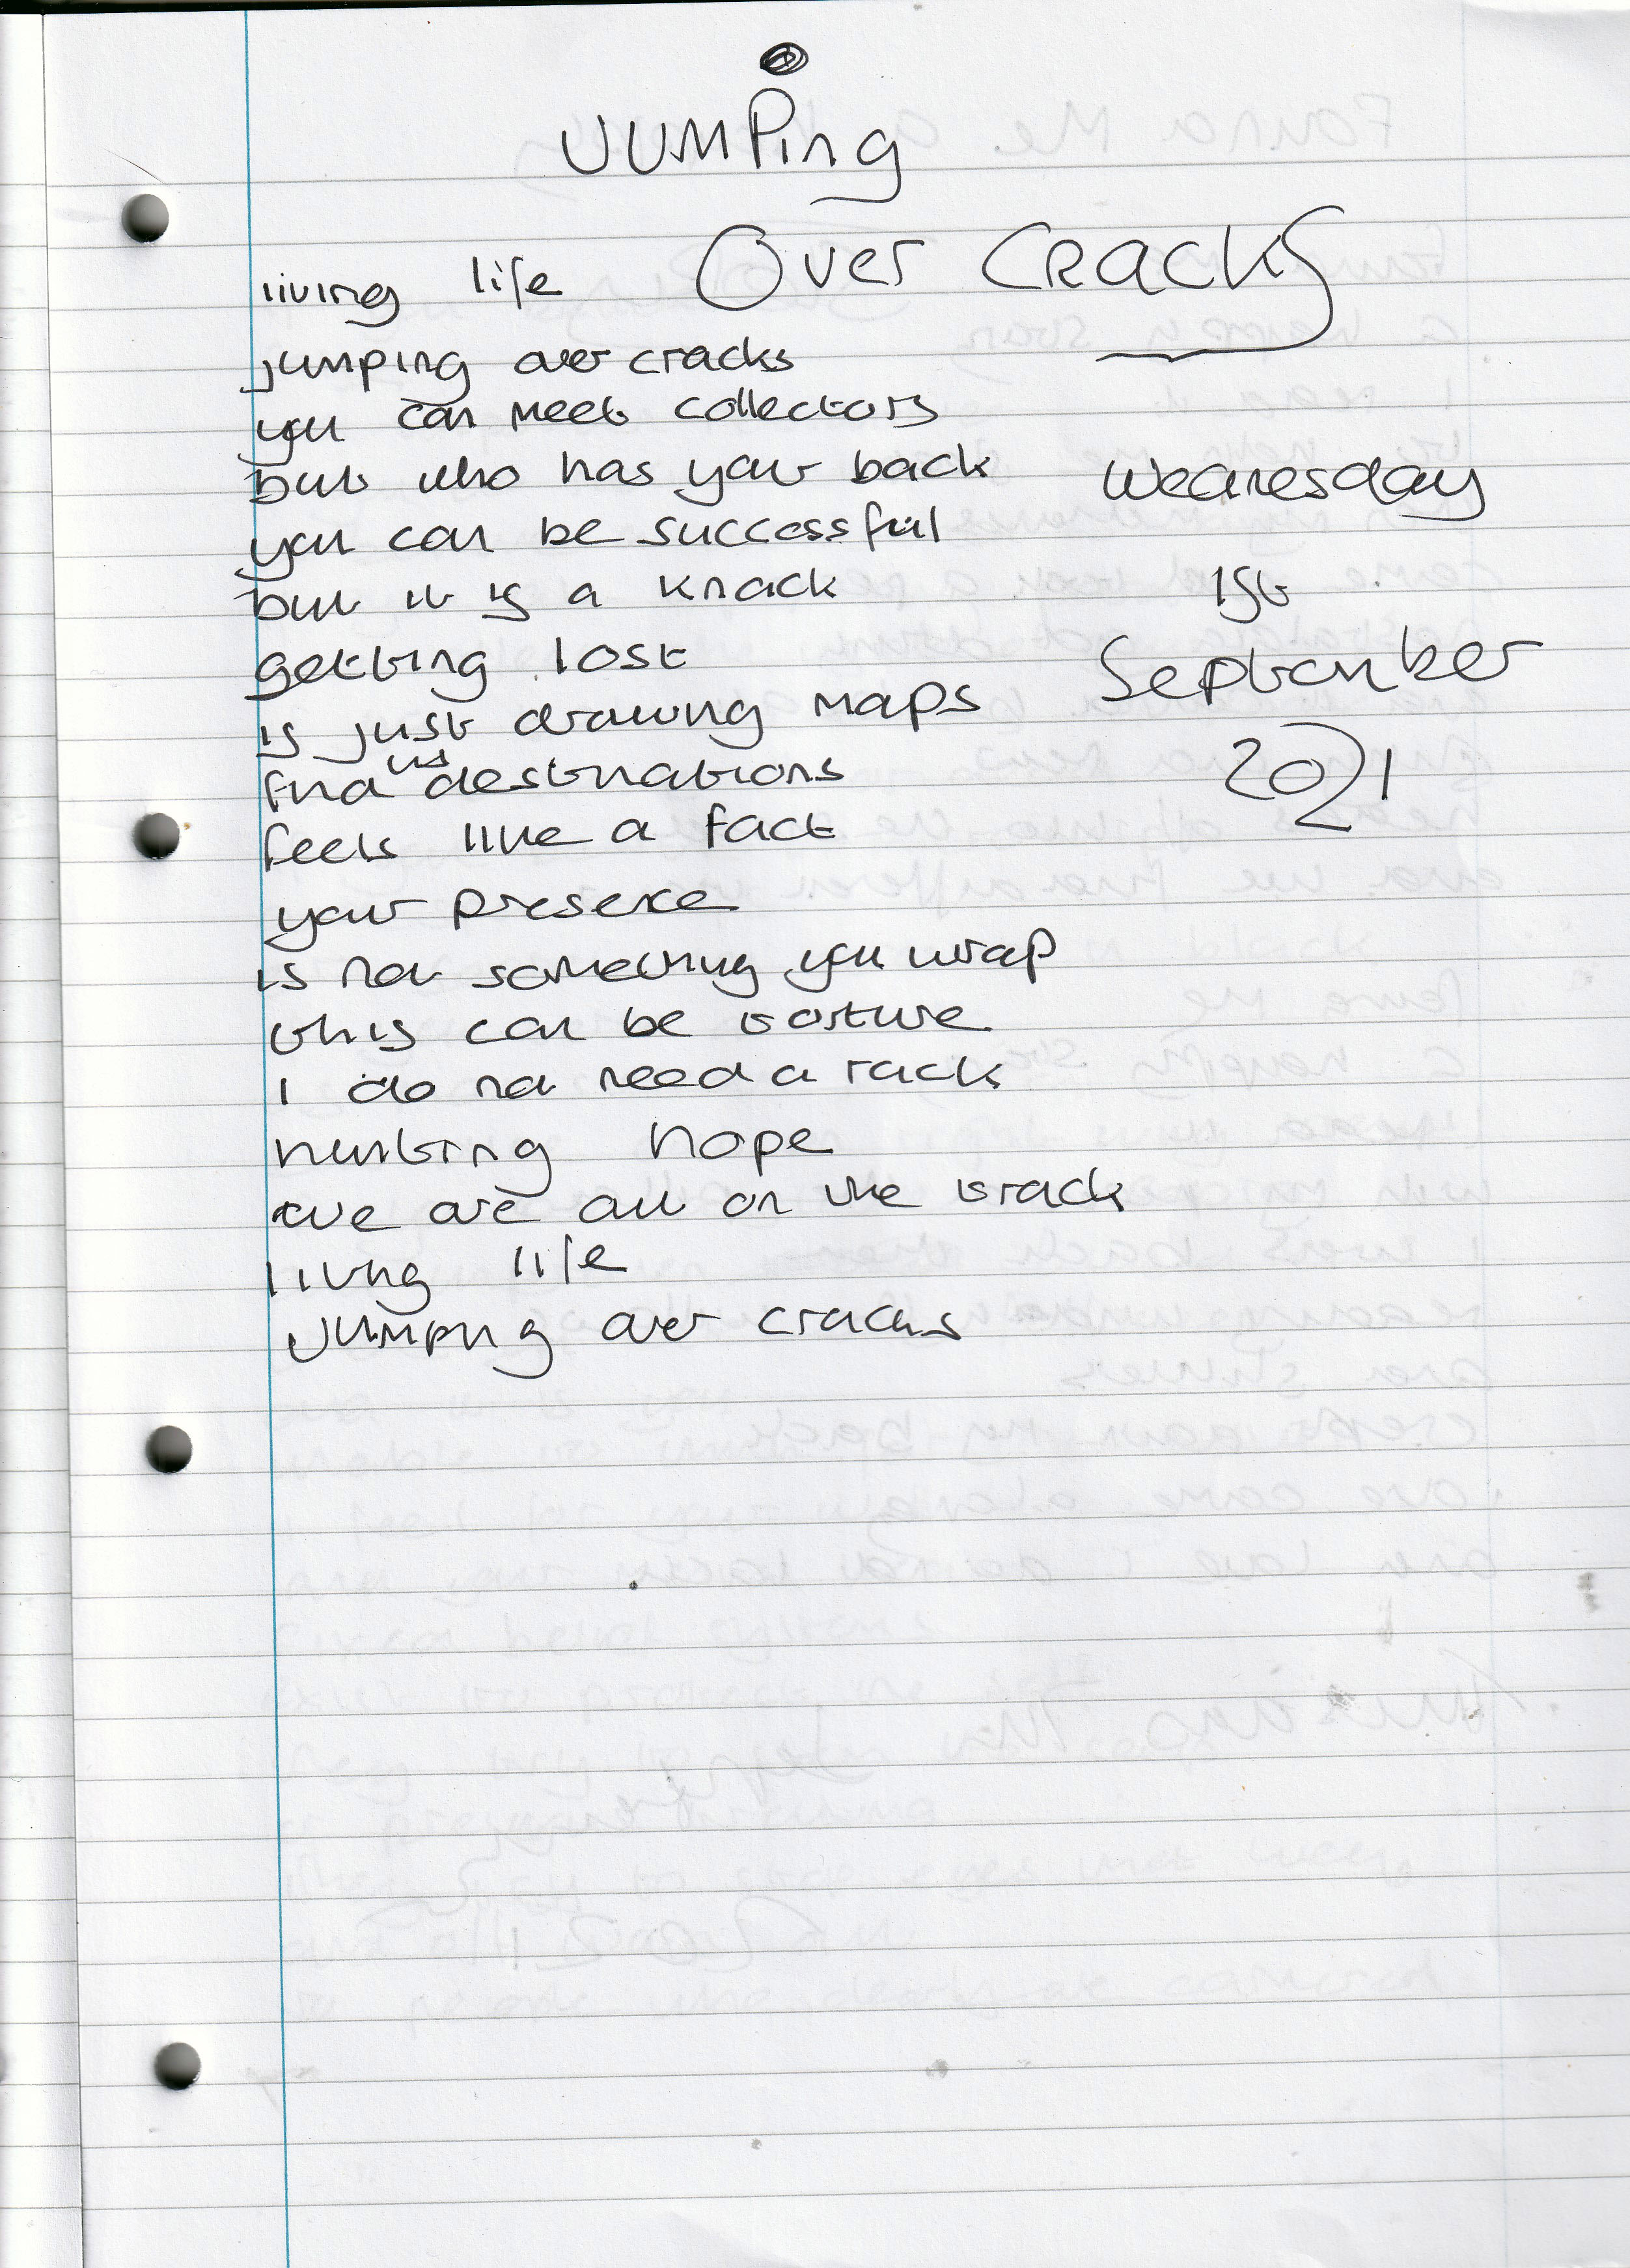 JUMPing
Over Cracks
living life
jumping over cracks
you can meet collectors
but who has your back
you can be successful
but it is a knack
getting lost
is just drawing maps
find us destinations
feels like a fact
your presence
is not something you wrap
this can be torture
I do not need a rack
hunting hope
we are all on the track
living life
Jumping over cracks
Wednesday
1st
September
2021